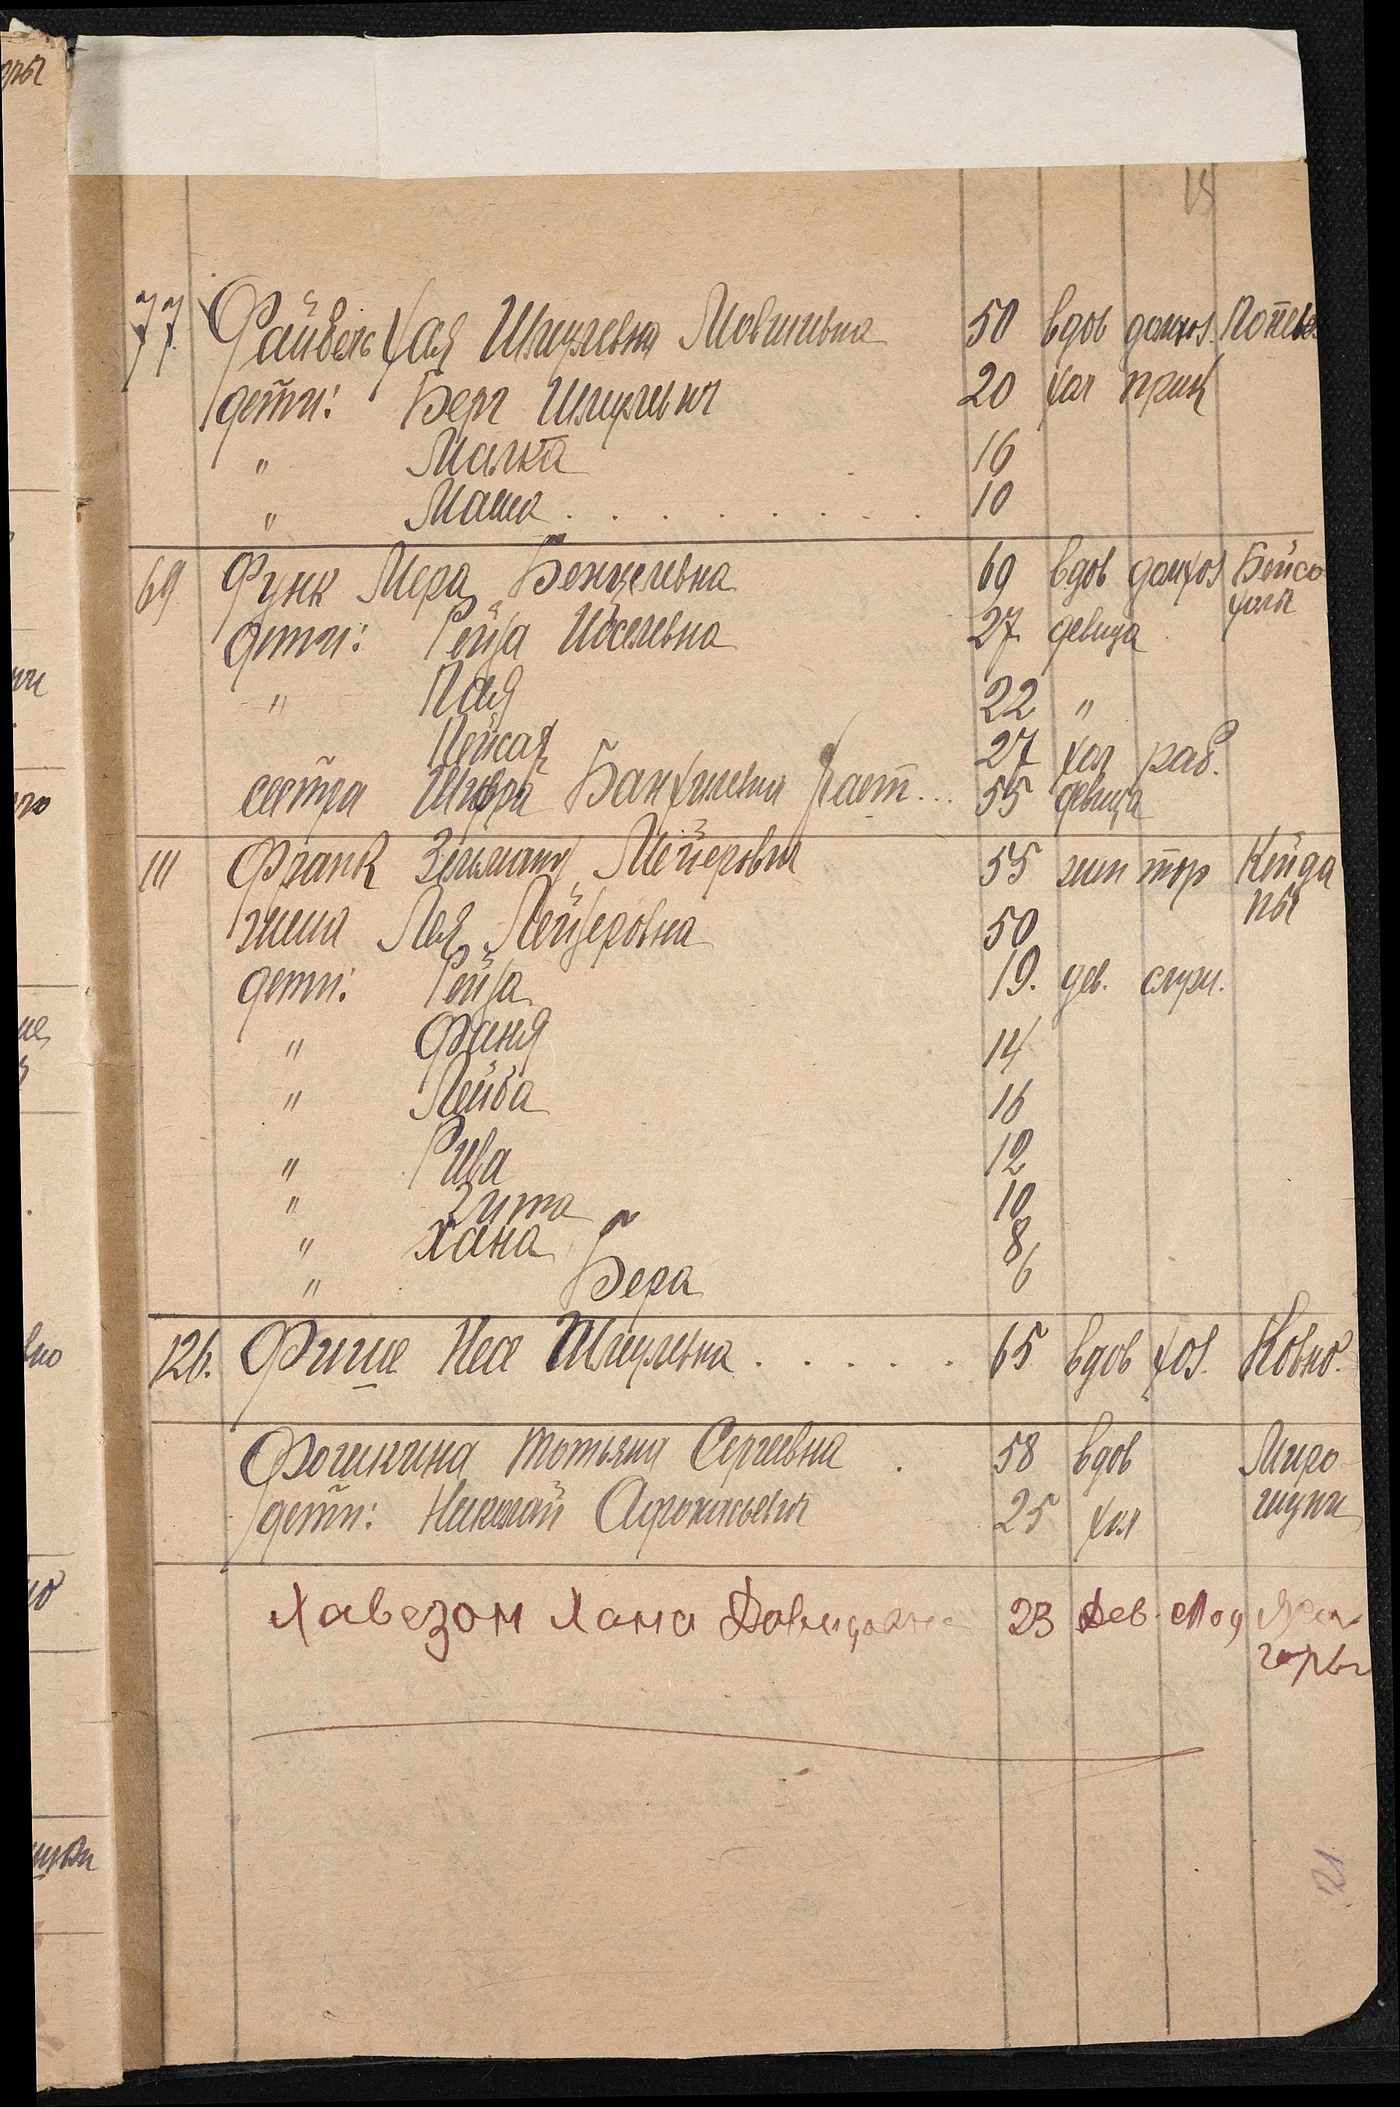 77 Файвель Хая Шмулевна Мовшивна 50 вдов домхоз. Понев.
дети: Берл Шмулевич 20 хол прик
" Малка 16
" Маша . . . . . . . . 10
69 Функ Мера Бенцелевна 69 вдов домхоз Бейсо
дети: Рейза Иоселевна 27 девица голи
" Пая 22 "
Пейсах 27 хол раб.
сестра Шифра 55 девица
111 Франк Зельман Мейерович 55 жен тор Кейда
жена Лея Лейзеровна 50 ны
дети: Рейза 19. дев. служ.
" Фаня 14
" Лейба 16
" Рива 12
" Зита 10
" Хана 8
" Бера 6
126. Фише Неса Шмулевна . . . . . . 65 вдов хоз. Ковно.
Татьяна Сергеевна . 58 вдов
дети: Николай Афонасьевич 25 хол
Хавезон Хана Давидовна 23 дев. мод
горы
21